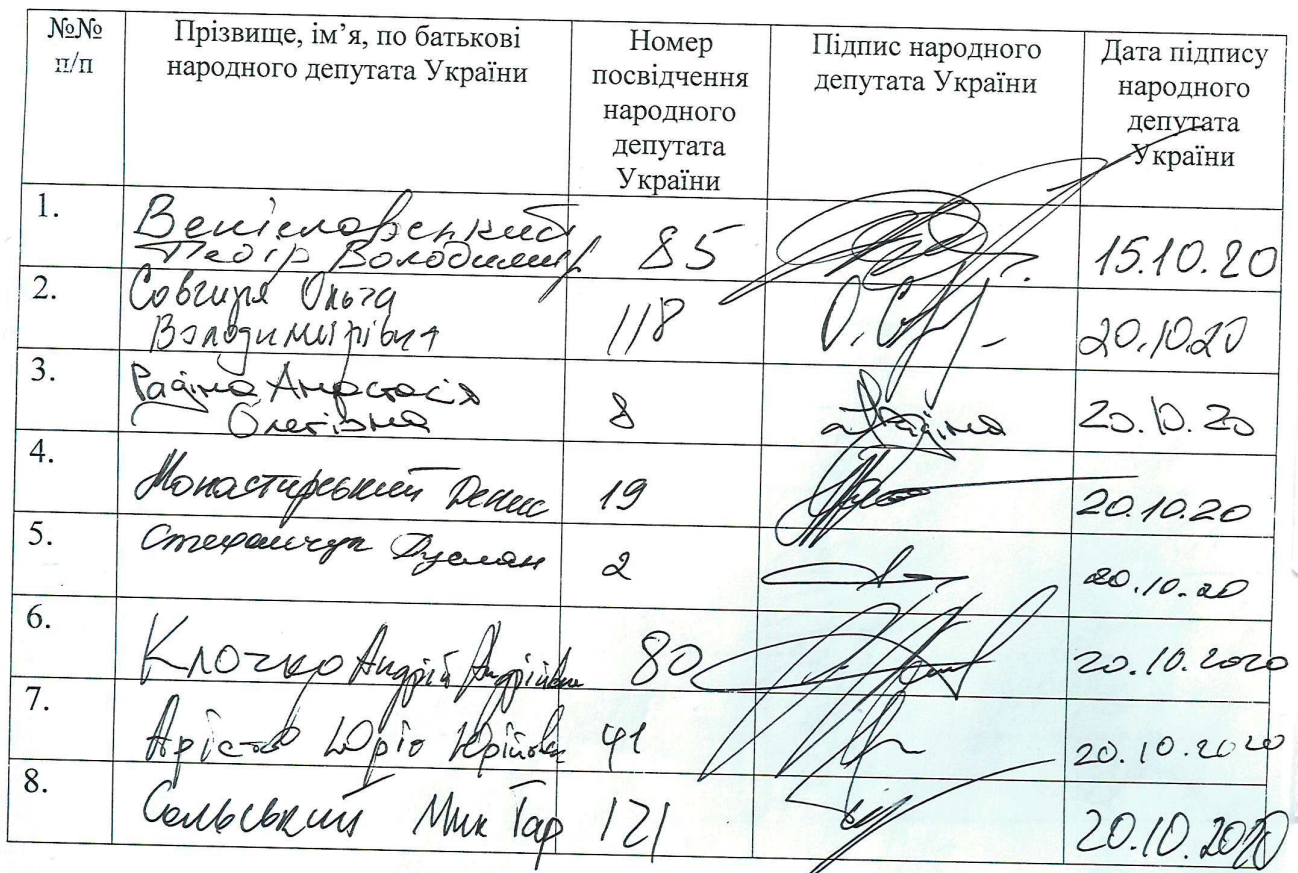 №№ п/п
Прізвище, ім’я, по батькові народного депутата України
Номер посвідчення народного депутата України
Підпис народного депутата України
Дата підпису народного депутата України
1.
Веніславський
Федір Володимир
85
15.10.20
2.
Совгиря Ольга
Володимирівна
118
О. Сов
20.10.20
3.
Радіна Анастасія
Олегівна
8
Радіна
20.10.20
4.
Монастирський Денис
19
20.10.20
5.
Стефанчук Руслан
2
20.10.20
6.
Клочко Андрій Андрійович
80
20.10.2020
7.
Арістов Юрій Юрійович
41
20.10.2020
8.
Сольський Мик Тар
121
20.10.2020